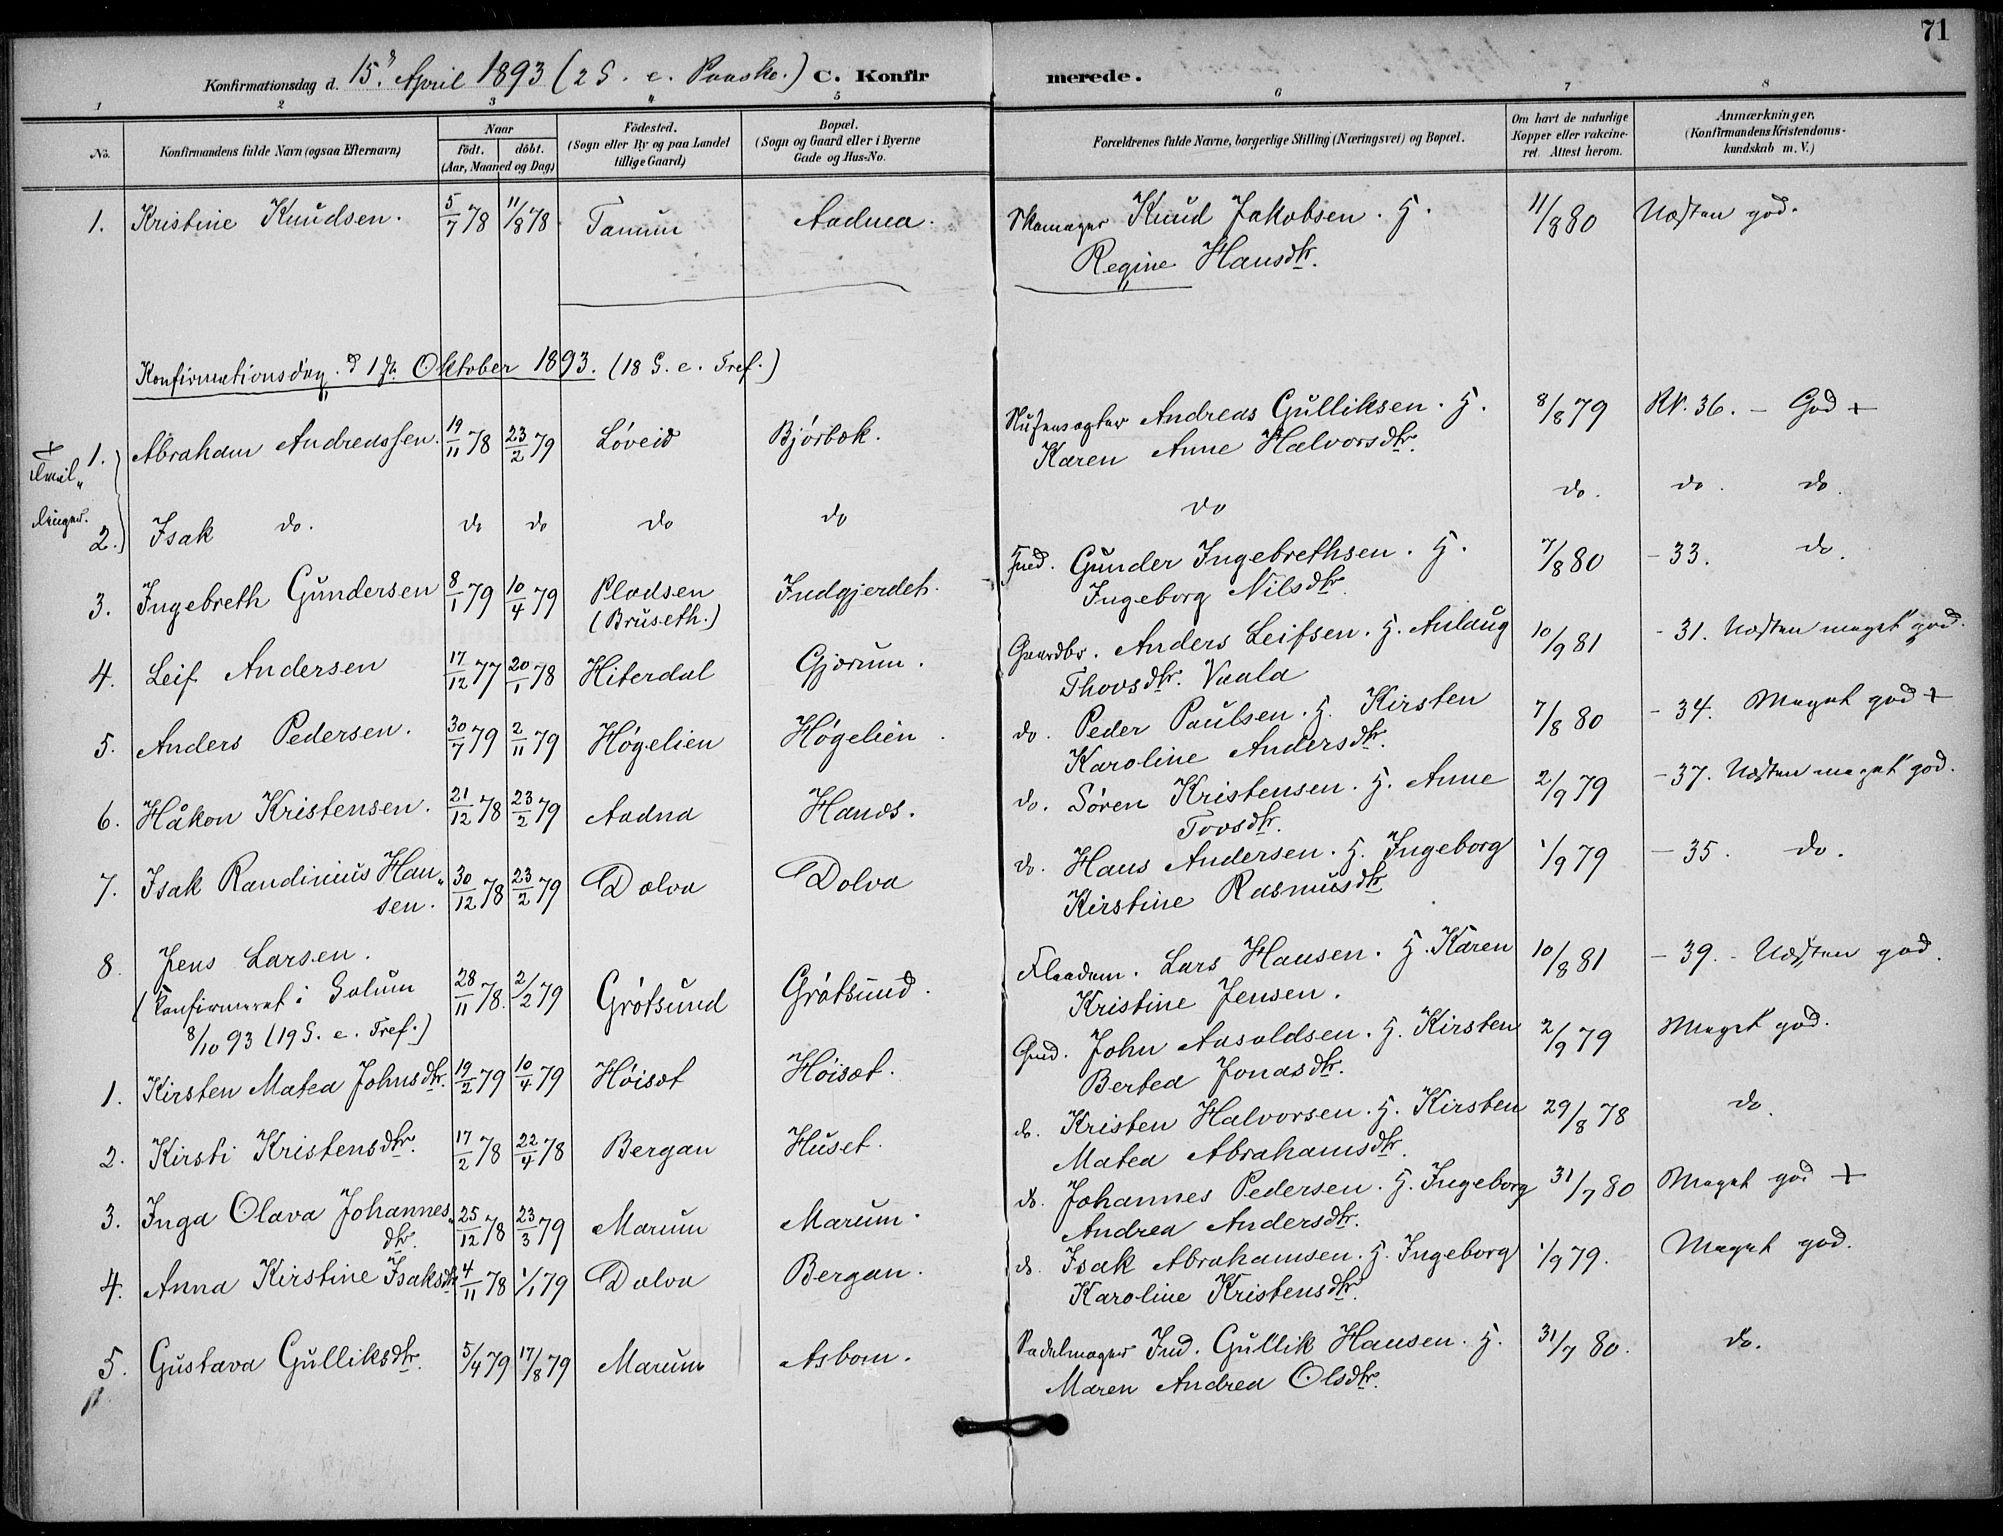 71
Konfirmationsdag d. 15. April 1893 (2 S. e. Paaske.) C. Konfirmerede.
1 2 3 4 5 6 7 8
No. Konfirmandens fulde Navn (ogsaa Efternavn) Naar födt. döbt. (Aar, Maaned og Dag) Födested. (Sogn eller By og paa Landet tillige Gaard) Bopæl. (Sogn og Gaard eller i Byerne Gade og Hus-No. Forældrenes fulde Navne, borgerlige Stilling (Næringsvei) og Bopæl. Om havt de naturlige Kopper eller vakcineret. Attest herom. Anmærkninger. (Konfirmandens Kristendomskundskab m. V.)
1. Kristine Knudsen. 5/7 78 11/8 78 Tanum Aadna. Skomager Knud Jakobsen. H. 11/8 80 Næsten god.
Regine Hansdtr.
Konfirmationsdag d 1ste Oktober 1893. (18 S. e. Tref.)
1. Abraham Andreassen. 19/11 78 23/2 79 Løveid Bjørbæk. Slusevogter Andreas Gulliksen. H. 8/8 79 Nr. 36. - God +
Karen Anne Halvorsdtr.
Tvil„
linger.
2. Isak do. do do do do do do. do. do.
3. Ingebreth Gundersen 8/1 79 10/4 79 Pladsen Indgjerdet. Ind. Gunder Ingebrethsen. H. 7/8 80 - 33. do.
(Bruseth.) Ingeborg Nilsdtr.
4. Leif Andersen 17/12 77 20/1 78 Hiterdal Gjærum. Gaardbr. Anders Leifsen. H. Anlaug 10/9 81 - 31. Næsten meget god.
Thovsdtr. Vaala
5. Anders Pedersen. 30/7 79 2/11 79 Høgelien Høgelien. do. Peder Paulsen. H. Kirsten 7/8 80 - 34. Meget god +
Karoline Andersdtr.
6. Håkon Kristensen. 21/12 78 23/2 79 Aadna Hanes. do. Søren Kristensen. H. Anne 2/9 79 - 37. Næsten meget god.
Tovsdtr.
7. Isak Randinius Han„ 30/12 78 23/2 79 Dølva Dolva do. Hans Andersen. H. Ingeborg 1/9 79 - 35. do.
sen. Kirstine Rasmusdtr
8. Jens Larsen. 28/11 78. 2/2 79 Grøtsund Grøtsund. Flaadem. Lars Hansen. H. Karen 10/8 81 - 39. - Næsten god.
(konfirmeret i Solum Kristine Jensen.
8/10 93 (19 S. e. Tref.)
1. Kirsten Matea Johnsdtr. 19/2 79 10/4 79 Høisæt Høisæt. Grd. John Aasoldsen. H. Kirsten 2/9 79 Meget god.
Bertea Jonasdtr.
2. Kirsti Kristensdtr. 17/2 78 22/4 78 Bergan Huset. do. Kristen Halvorsen. H. Kirsten 29/8 78 do.
Matea Abrahamsdtr.
3. Inga Olava Johannes„ 25/12 78 23/3 79 Marum Marum. do. Johannes Pedersen. H. Ingeborg 31/7 80 Meget god +
dtr. Andrea Andersdtr.
4. Anna Kirstine Isaksdtr 4/11 78 1/1 79 Dølva Bergan. do. Isak Abrahamsen. H. Ingeborg 1/9 79. Meget god.
Karoline Kristensdtr.
5. Gustava Gulliksdtr. 5/4 79 17/8 79 Marum Asbom. Sadelmager Ind. Gullik Hansen. H. 31/7 80. do.
Maren Andrea Olsdtr.